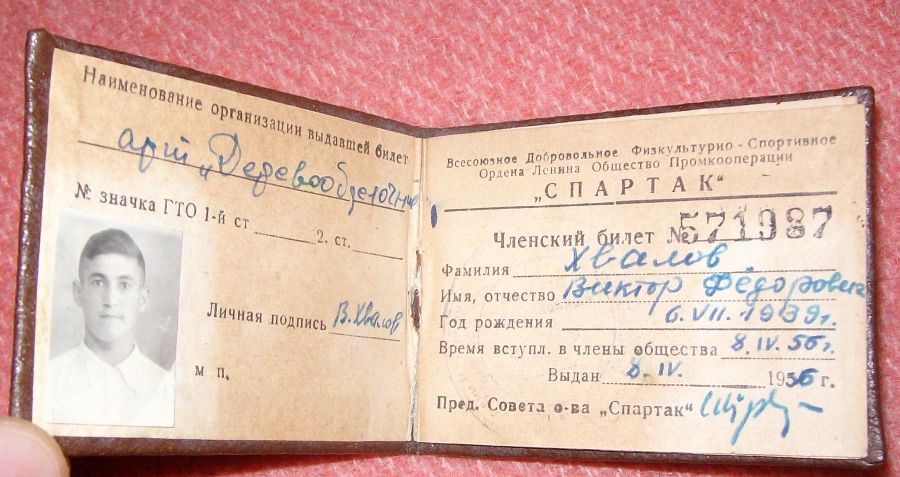 Наименование организации выдавшей билет
арт. „Деревообделочник
№ значка ГТО 1-й ст. 2. ст.
Личная подпись В.Хвалов
м п.
Всесоюзное Добровольное Физкультурно-Спортивное
Ордена Ленина Общество Промкооперации
„СПАРТАК“
Членский билет № 571987
Фамилия Хвалов
Имя, отчество Виктор Фёдорович
Год рождения 6.VII.1939г.
Время вступл. в члены общества 8.IV.56г.
Выдан 8.IV. 1956 г.
Пред. Совета о-ва „Спартак“